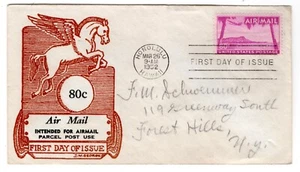 HONOLULU
MAR 26
9-AM
1952
HAWAII
FIRST DAY OF ISSUE
AIR MAIL
80c
Air Mail
INTENDED FOR AIRMAIL
PARCEL POST USE
FIRST DAY OF ISSUE
F. M.
119 South
Forest Hills,
N.Y.